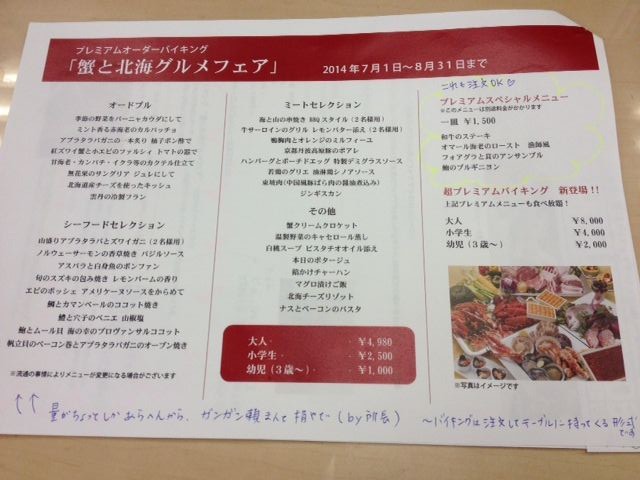 プレミアムオーダーバイキング
「蟹と北海グルメフェア」
2014年7月1日～8月31日まで
オードブル
季節の野菜をバーニャカウダにして
ミント香る赤海老のカルパッチョ
アブラタラバガニの一本炙り 柚子ポン酢で
紅ズワイ蟹と小エビのファルシィ トマトの器で
甘海老・カンパチ・イクラ等のカクテル仕立て
無花果のサングリア ジュレにして
北海道産チーズを使ったキッシュ
雲丹の冷製フラン
シーフードセレクション
山盛りアブラタラバとズワイガニ（2名様用）
ノルウェーサーモンの香草焼き バジルソース
アスパラと白身魚のボンファン
旬のスズキの包み焼き レモンバームの香り
エビのポッシェ アメリケーヌソースをからめて
鯛とカマンベールのココット焼き
鱧と穴子のベニエ 山椒塩
鮑とムール貝 海の幸のプロヴァンサルココット
帆立貝のベーコン巻とアブラタラバガニのオーブン焼き
※流通の事情によりメニューが変更になる場合がございます
ミートセレクション
海と山の串焼き BBQ スタイル（2名様用）
牛サーロインのグリル レモンバター添え（2名様用）
鴨胸肉とオレンジのミルフィーユ
京都丹波高原豚のポアレ
ハンバーグとポーチドエッグ 特製デミグラスソース
若鶏のグリエ 油淋鶏シノアソース
東坡肉(中国風豚ばら肉の醤油煮込み)
ジンギスカン
その他
蟹クリームクロケット
温製野菜のキャセロール蒸し
白桃スープ ピスタチオオイル添え
本日のポタージュ
餡かけチャーハン
マグロ漬けご飯
北海チーズリゾット
ナスとベーコンのパスタ
大人・ ・¥4,980
小学生・ ・¥2,500
幼児（3歳～）・ ・¥1,000
これも注文OK♡
プレミアムスペシャルメニュー
※このメニューは別途料金がかかります
一皿 ¥1,500
和牛のステーキ
オマール海老のロースト 漁師風
フォアグラと貝のアンサンブル
鮑のブルギニヨン
超プレミアムバイキング 新登場！！
上記プレミアムメニューも食べ放題！
大人 ¥8,000
小学生 ¥4,000
幼児（3歳～） ¥2,000
※写真はイメージです
↑↑ 量がちょっとしかあらへんから、ガンガン頼まんと損やで（by所長）
～バイキングは注文してテーブルに持ってくる形式です